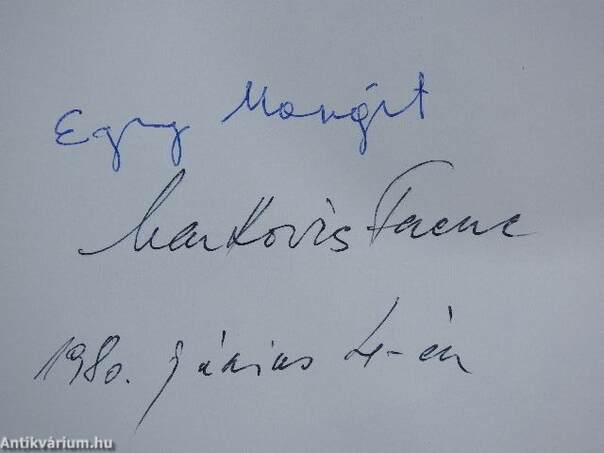 Egry Margit
Markovits Ferenc
1980. június 4-én
Antikvárium.hu